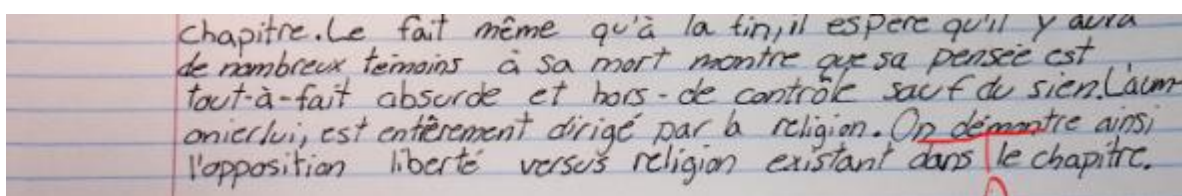 chapitre. Le fait même qu'à la fin, il espère qu'il y aura
de nombreux témoins à sa mort montre que sa pensée est
tout-à-fait absurde et hors-de contrôle sauf du sien. L'aum-
onier lui, est entièrement dirigé par la religion. On démontre ainsi
l'opposition liberté versus religion existant dans le chapitre.